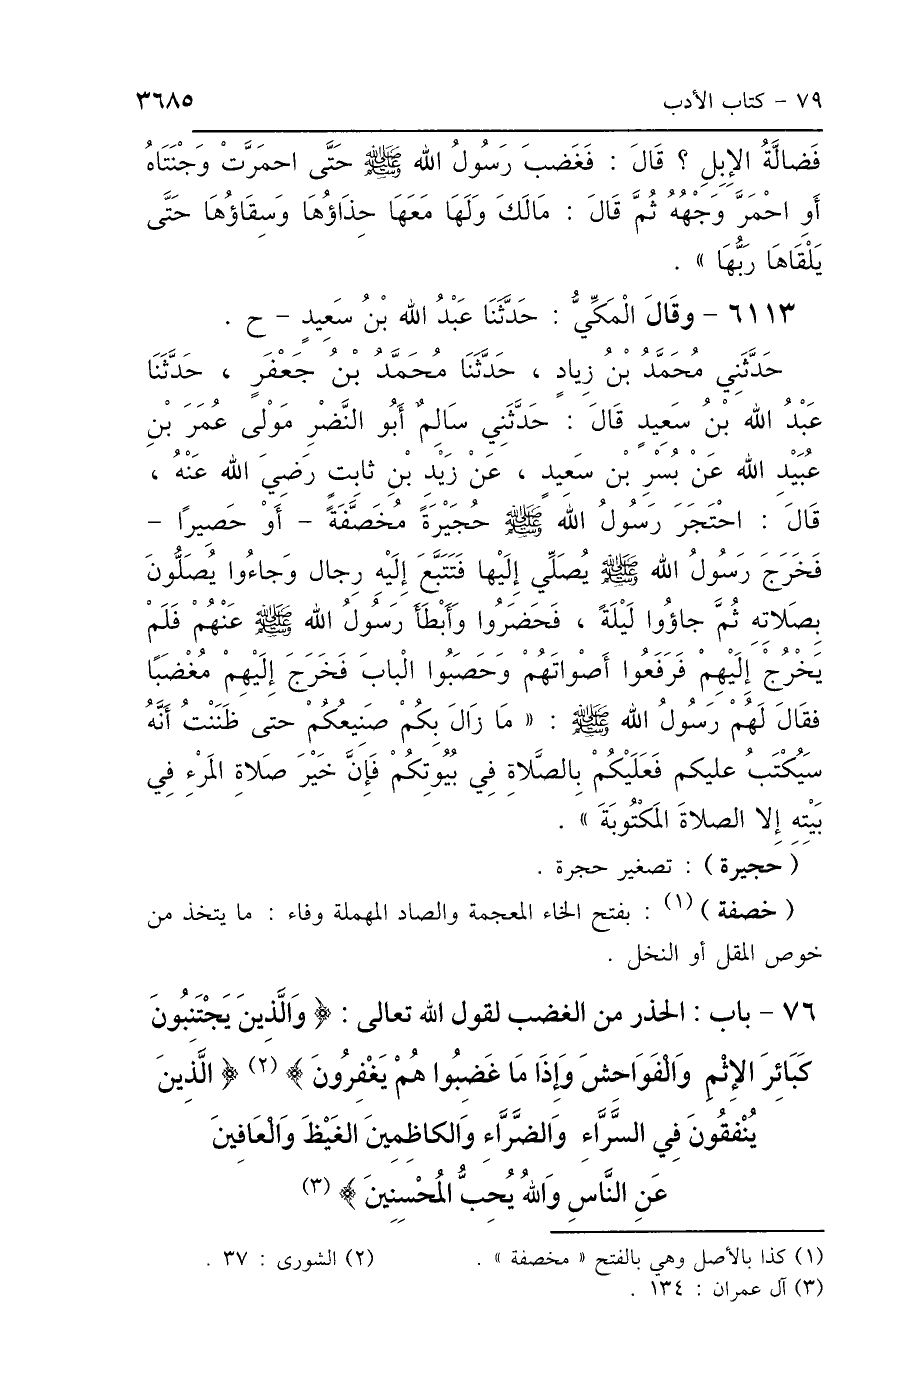 ٧٩ – كتاب الأدب ٣٦٨٥
فَضالَّةُ الإِبِلِ ؟ قَالَ : فَغَضبَ رَسُولُ الله ﷺ حَتَّى احمَرَّتْ وَجْنَتَاهُ
أَو احْمَرَّ وَجْهُهُ ثُمَّ قَالَ : مَالَكَ وَلَهَا مَعَهَا حِذَاؤُهَا وَسِقَاؤُهَا حَتَّى
يَلْقَاهَا رَبُّهَا » .
٦١١٣ – وقَالَ الْمَكِّيُّ : حَدَّثَنَا عَبْدُ الله بْنُ سَعِيدٍ – ح .
حَدَّثَنِي مُحَمَّدُ بْنُ زِيادٍ ، حَدَّثَنَا مُحَمَّدُ بْنُ جَعْفَرٍ ، حَدَّثَنَا
عَبْدُ الله بْنُ سَعِيدٍ قَالَ : حَدَّثَنِي سَالِمٌ أَبُو النَّضْرِ مَوْلى عُمَرَ بْنِ
عُبَيْدِ الله عَنْ بُسْرِ بْنِ سَعِيدٍ ، عَنْ زَيْدِ بْنِ ثابِتٍ رَضِيَ الله عَنْهُ ،
قَالَ : احْتَجَرَ رَسُولُ الله ﷺ حُجَيْرَةً مُخَصَّفَةً – أَوْ حَصِيرًا –
فَخَرَجَ رَسُولُ الله ﷺ يُصَلِّي إِلَيْها فَتَتَبَّعَ إِلَيْهِ رِجال وَجاءُوا يُصَلُّونَ
بِصَلاتِهِ ثُمَّ جاؤُوا لَيْلَةً ، فَحَضَرُوا وَأَبْطَأَ رَسُولُ الله ﷺ عَنْهُمْ فَلَمْ
يَخْرُجْ إِلَيْهِمْ فَرَفَعُوا أَصْوَاتَهُمْ وَحَصَبُوا الْبابَ فَخَرَجَ إِلَيْهِمْ مُغْضَبًا
فقَالَ لَهُمْ رَسُولُ الله ﷺ : « مَا زَالَ بِكُمْ صَنِيعُكُمْ حتى ظَنَنْتُ أَنَّهُ
سَيُكْتَبُ عليكم فَعَلَيْكُمْ بِالصَّلاةِ فِي بُيُوتِكُمْ فَإِنَّ خَيْرَ صَلاةِ المَرْءِ فِي
بَيْتِهِ إِلا الصلاةَ المَكْتُوبَةَ » .
( حجيرة ) : تصغير حجرة .
( خصفة )(١) : بفتح الخاء المعجمة والصاد المهملة وفاء : ما يتخذ من
خوص المقل أو النخل .
٧٦ – باب : الحذر من الغضب لقول الله تعالى : ﴿ وَالَّذِينَ يَجْتَنِبُونَ
كَبَائِرَ الإِثْمِ وَالْفَوَاحِشَ وَإِذَا مَا غَضِبُوا هُمْ يَغْفِرُونَ ﴾ (٢) ﴿ الَّذِينَ
يُنْفِقُونَ فِي السَّرَّاءِ وَالضَّرَّاءِ وَالكاظِمِينَ الغَيْظَ وَالْعَافِينَ
عَنِ النَّاسِ وَاللهُ يُحِبُّ المُحْسِنِينَ ﴾ (٣)
(١) كذا بالأصل وهي بالفتح « مخصفة » . (٢) الشورى : ٣٧ .
(٣) آل عمران : ١٣٤ .